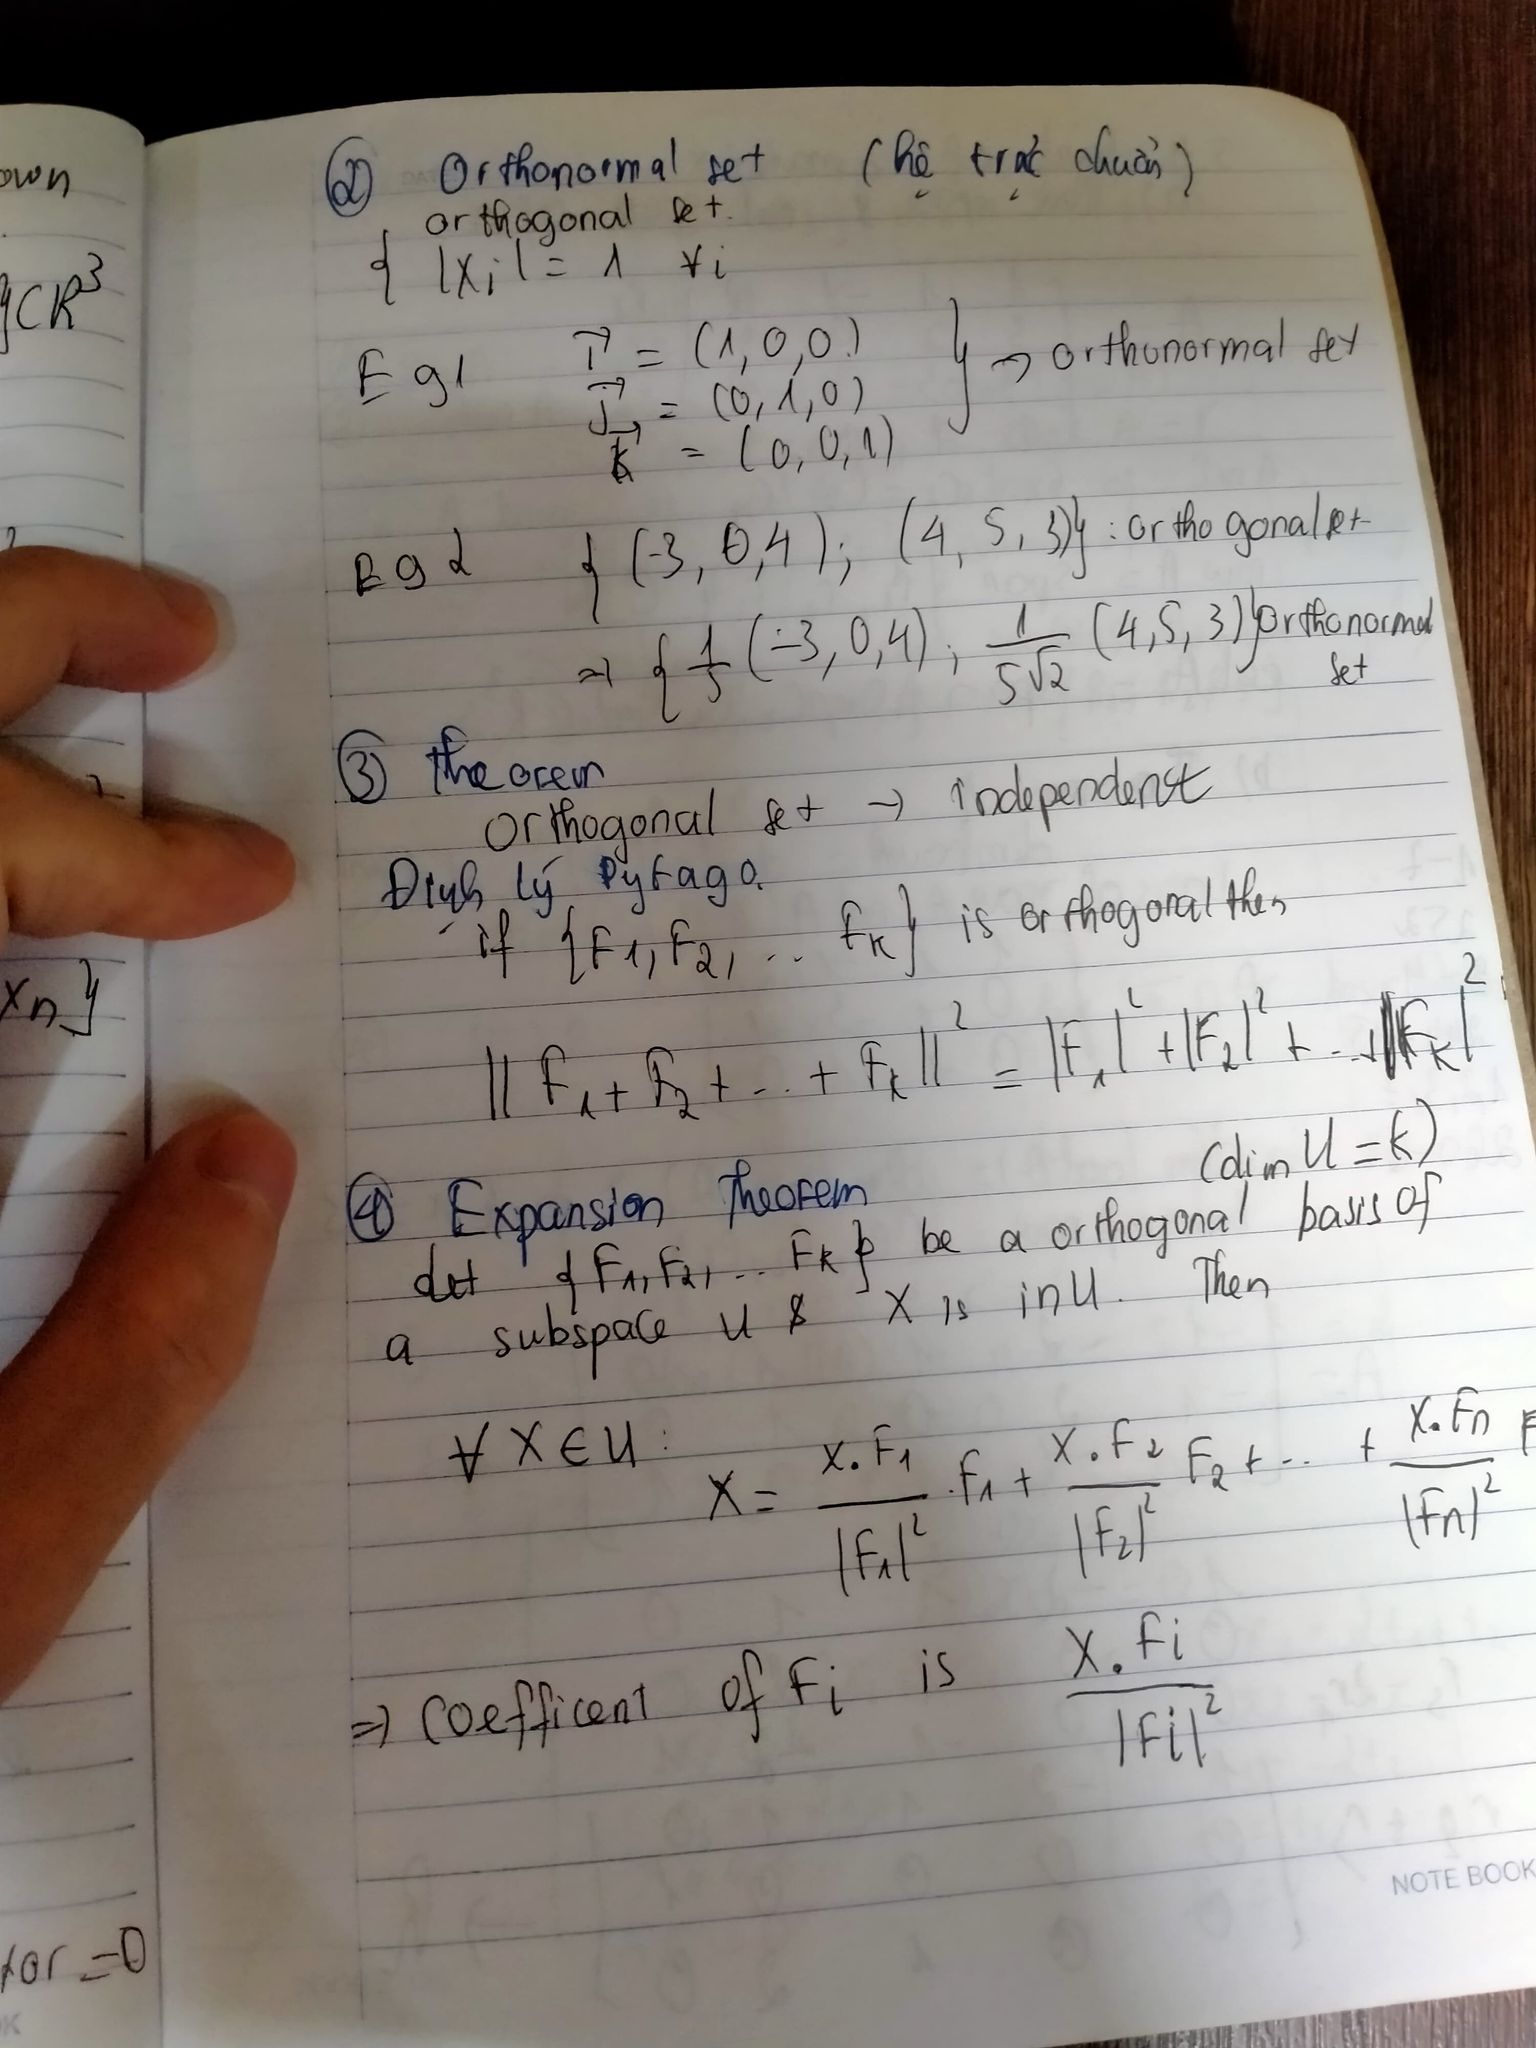 own
② Orthonormal set (hệ trực chuẩn)
orthogonal set.
{ |Xi| = 1 ∀i
}CR³
Eg1 i⃗ = (1,0,0)
j⃗ = (0,1,0) } → orthonormal set
k⃗ = (0,0,1)
Eg2 { (-3,0,4); (4,5,3)} : orthogonal set
⇒ { 1/5 (-3,0,4); 1/(5√2) (4,5,3)} orthonormal
set
③ theorem
Orthogonal set → independent
Định lý Pytago.
if {F1, F2, .. Fk} is orthogonal then
xn}
|| F1 + F2 + ... + Fk ||² = |F1|² + |F2|² + ... + ||Fk|²
(dim U = k)
④ Expansion Theorem
Let {F1, F2, ... Fk} be a orthogonal basis of
a subspace U & X is in U. Then
∀ X ∈ U : X = (X.F1)/|F1|² .F1 + (X.F2)/|F2|² F2 + ... + (X.Fn)/|Fn|² F
⇒ Coefficent of Fi is (X.Fi)/|Fi|²
NOTE BOOK
tor = 0
OK